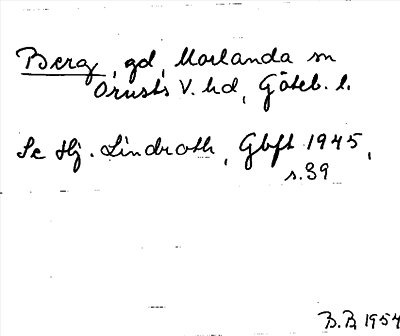 Berg, gd, Morlanda sn
Orusts V. hd, Göteb. l.
Se Hj. Lindroth, Gbft 1945,
s. 39
B.B. 1954